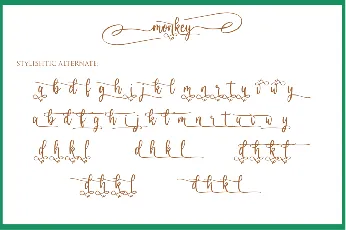 monkey
STYLISHTIC ALTERNATE:
a b d f g h i j k l m n r t u v w y
a b d f g h i j k l m n r t u v w y
d h k l d h k l d h k l
d h k l d h k l